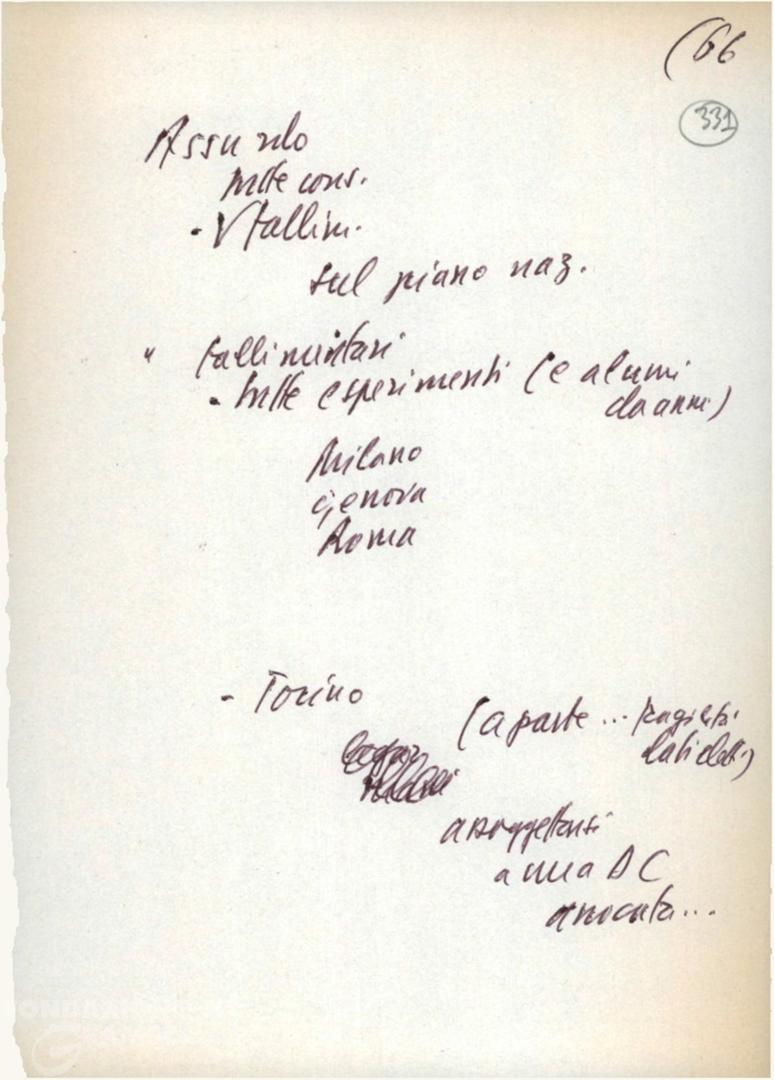 (66
331
Assurdo
tutte cons.
- V fallim.
sul piano naz.
" fallimentari
- tutte esperimenti (e alcuni
da anni)
Milano
Genova
Roma
- Torino
(a parte ... fragilità
dati elett.)
assoggettarsi
a una DC
arroccata...